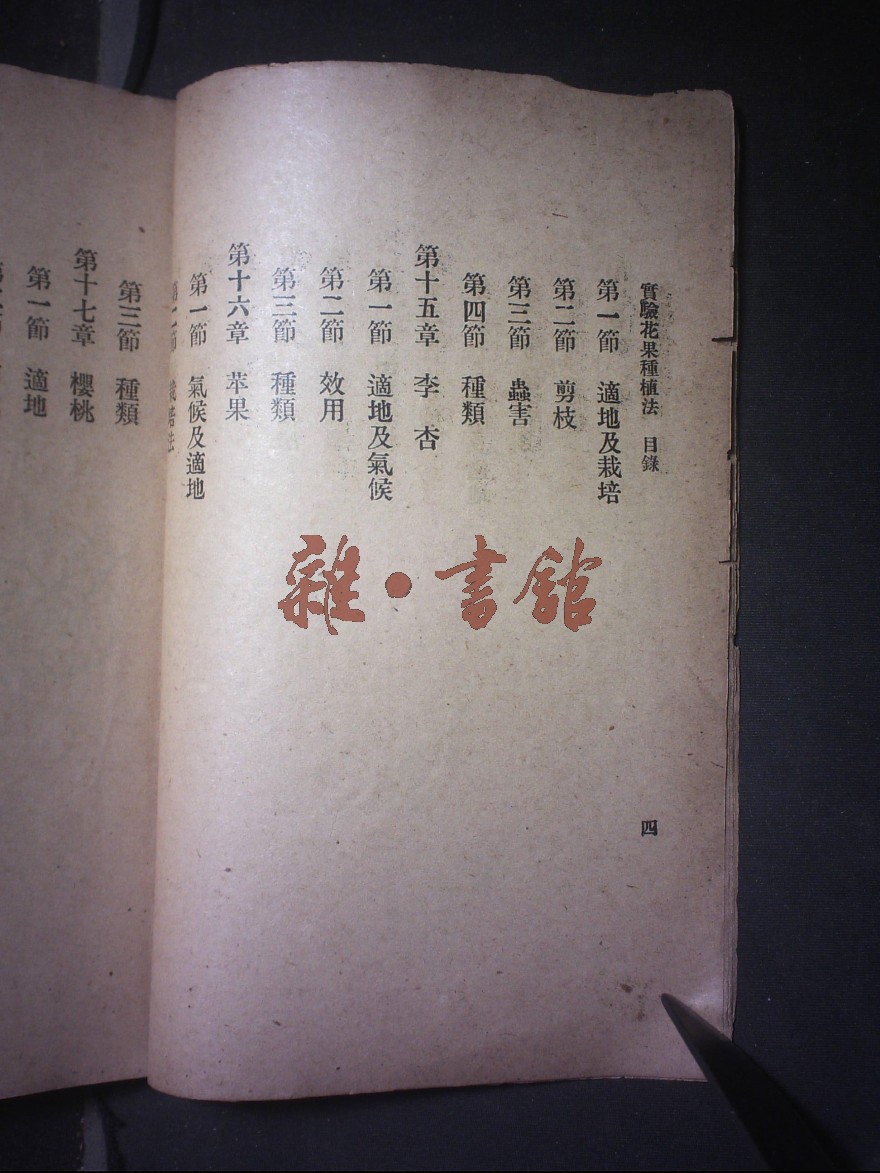 實驗花果種植法 目錄
四
第一節 適地及栽培
第二節 剪枝
第三節 蟲害
第四節 種類
第十五章 李 杏
第一節 適地及氣候
第二節 效用
第三節 種類
第十六章 苹果
第一節 氣候及適地
第二節 栽培法
第三節 種類
第十七章 櫻桃
第一節 適地
雜·書館